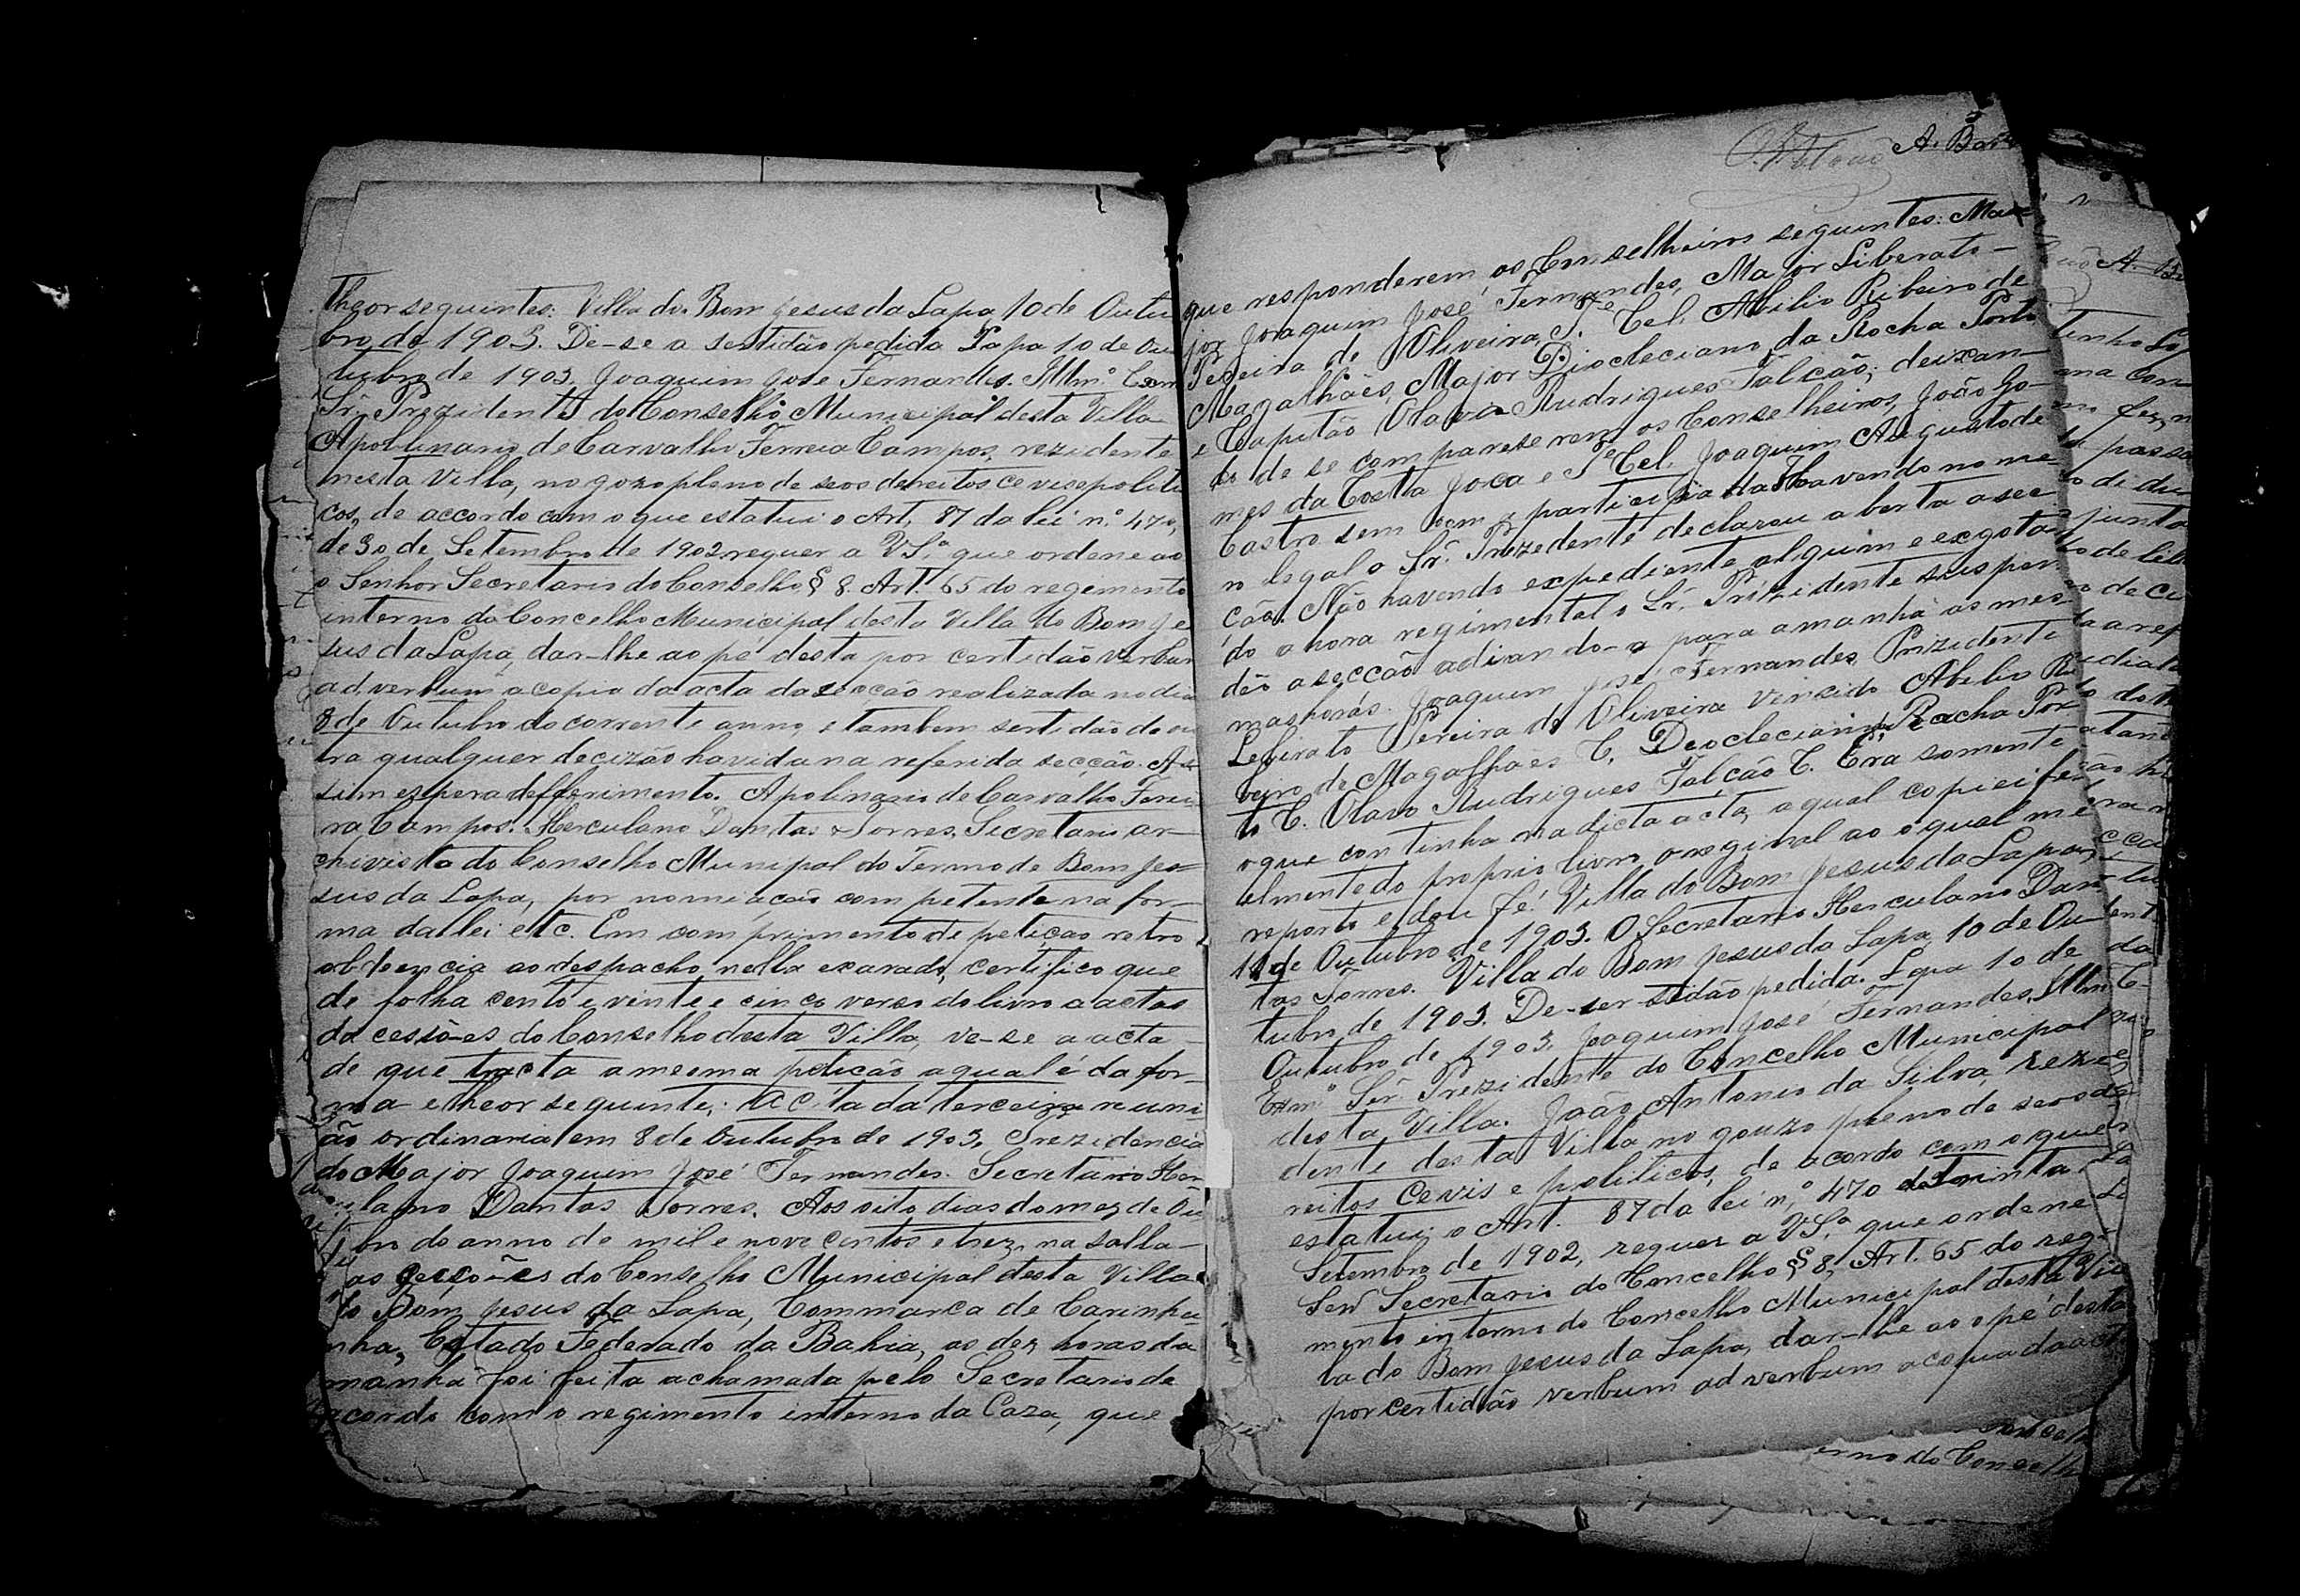 Theor seguintes: Villa do Bom Jesus da Lapa 10 de Outu
bro de 1903. De-se a sertidão pedida Lapa 10 de Ou
tubro de 1903. Joaquim José Fernandes. Illmº Exm
Sr. Prezidente do Conselho Municipal desta Villa
Apollinario de Carvalho Ferreia Campos, rezidente
nesta Villa, no gozo pleno de seos dereitos cevis e politi
cos, de accordo com o que estatui o Art. 87 da lei nº 470,
de 30 de Setembro de 1902 requer a VSª que ordene ao
o Senhor Secretario do Conselho § 8. Art. 65 do regemento
interno do Concelho Municipal desta Villa do Bom Je
sus da Lapa, dar-lhe ao pé desta por certidão verbum
ad verbum a copia da acta da secção realizada no dia
8 de Outubro do corrente anno, e tambem sertidão de ou
tra qualquer decizão havida na referida secção. As
sim espera defferimento. Apolinario de Carvalho Ferei
ra Campos. Herculano Dantas Torres, Secretario ar-
chivista do Conselho Municipal do Termo de Bom Je-
sus da Lapa, por nomiação competente na for-
ma da lei etc. Em comprimento de petiçao retro
obdeencia ao despacho nella exarado, certifico que
de folha cento e vinte e cinco verso do livro a actas
da cessões do Conselho desta Villa, ve-se a acta
de que tracta a mesma petição a qual é da for-
ma e theor seguinte: Acta da terceira reuni
ão ordinaria em 8 de Outubro de 1903, Prezidencia
do Major Joaquim José Fernandes. Secretario Her
culano Dantas Torres. Aos oito dias do mez de Ou
bro do anno de mil e nove centos e trez, na salla
as sessões do Conselho Municipal desta Villa
do Bom Jesus da Lapa, Commarca de Carinha
nha, Estado Federado da Bahia, as dez horas da
manhã foi feita a chamada pelo Secretario de
acordo com o regimento interno da Caza, que
A. Bor
que responderem os Conselheiros seguintes: Ma
jor Joaquim José Fernandes, Major Liberato
Pereira de Oliveira, Te Cel. Abilio Ribeiro de
Magalhães, Major Diocleciano da Rocha Porto
e Capitão Olavo Rudrigues Falcão; deixan-
do de se comparese rem os Conselheiros, João Go-
mes da Costa Joca e Te Cel. Joaquim Augusto de
Castro sem participada Havendo no me-
ro legal o Sr. Prezedente declarou aberta a sec
ção. Não havendo expediente alguim e exgota-
do a hora regimental o Sr. Prizidente suspen
deo a secção adiando-a para amanhã as mes
mas horas. Joaquim José Fernandes Prizidente
Lebirato Pereira de Oliveira Versido Abilio Ri
beiro de Magalhães C. Deocleciano Racha Por
to C. Olavo Rudrigues Falcão C. Era somente
o que continha na dicta acta, a qual copiei fi
elmente do proprio livro original ao o qual me
reporto e dou fé. Villa do Bom Jesus da Lapa
10 de Outubro de 1903. O Secretario Herculano Dan
tas Torres. Villa do Bom Jesus da Lapa 10 de Ou
tubro de 1903. De-ser-tidão pedida. Lapa 10 de
Outubro de 1903. Joaquim José Fernandes, Illm
Exmº Sr. Prezidente do Concelho Municipal
desta Villa. João Antonio da Silva, reze
dente desta Villa no gouzo pheno de seos de
reitos cevis e politicos, de acordo com o que
estatui o Art. 87 da lei nº 470 de trinta
Setembro de 1902, requer a VSª que ordene
Senr Secretario do Concelho § 8, Art. 65 do reg-
mento interno do Concelho Municipal desta Vil
la do Bom Jesus da Lapa, dar-lhe ao o pé desta
por certidão verbum ad verbum a copia da act
erno do Conselh